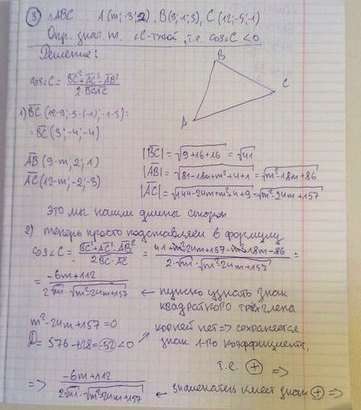 ③ △ABC A(m;-3;2), B(9;-1;3), C(12;-5;-1)
Опр. знач. m, ∠C-тупой, т.е. cos∠C<0
Решение:
cos∠C = (BC²+AC²-AB²)/(2·BC·AC)
B
C
A
1) BC (12-9;-5-(-1);-1-3) =
= BC (3;-4;-4)
AB (9-m;2;1)
AC (12-m;-2;-3)
|BC| = √(9+16+16) = √41
|AB| = √(81-18m+m²+4+1) = √(m²-18m+86)
|AC| = √(144-24m+m²+4+9) = √(m²-24m+157)
это мы нашли длины сторон
2) теперь просто подставляем в формулу
cos∠C = (BC²+AC²-AB²)/(2BC·AC) = (41+m²-24m+157-m²+18m-86)/(2·√41·√(m²-24m+157)) =
= (-6m+112)/(2√41·√(m²-24m+157)) ← нужно узнать знак
квадратного трёхчлена
m²-24m+157=0
D = 576-628=-52<0
корней нет => сохраняется
знак 1-го коэффициента,
т.е. ⊕ =>
=> (-6m+112)/(2√41·√(m²-24m+157)) ← знаменатель имеет знак ⊕ =>